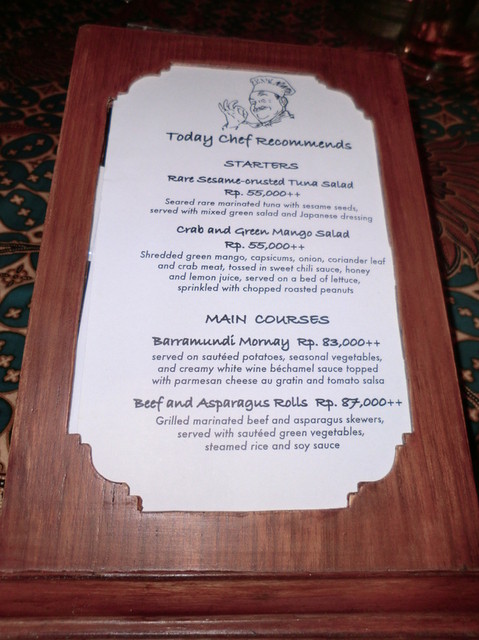 Today Chef Recommends
STARTERS
Rare Sesame-crusted Tuna Salad
Rp. 55,000++
Seared rare marinated tuna with sesame seeds,
served with mixed green salad and Japanese dressing
Crab and Green Mango Salad
Rp. 55,000++
Shredded green mango, capsicums, onion, coriander leaf
and crab meat, tossed in sweet chili sauce, honey
and lemon juice, served on a bed of lettuce,
sprinkled with chopped roasted peanuts
MAIN COURSES
Barramundi Mornay Rp. 83,000++
served on sautéed potatoes, seasonal vegetables,
and creamy white wine béchamel sauce topped
with parmesan cheese au gratin and tomato salsa
Beef and Asparagus Rolls Rp. 87,000++
Grilled marinated beef and asparagus skewers,
served with sautéed green vegetables,
steamed rice and soy sauce